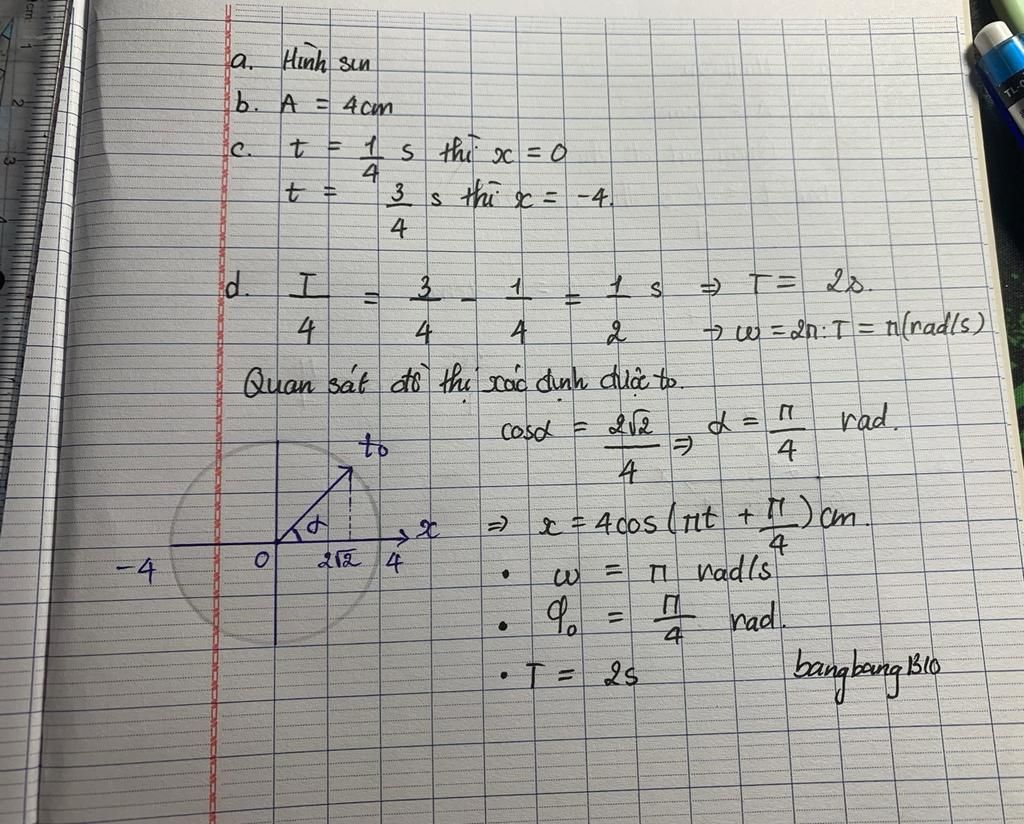 a. Hình sin
b. A = 4cm
c. t = 1/4 s thì x = 0
t = 3/4 s thì x = -4.
d. T/4 = 3/4 - 1/4 = 1/2 s ⇒ T = 2s.
→ ω = 2π : T = π (rad/s)
Quan sát đồ thị xác định được to.
cosα = 2√2/4 ⇒ α = π/4 rad.
to
α
x
-4
0
2√2
4
⇒ x = 4cos(πt + π/4) cm.
• ω = π rad/s
• φ₀ = π/4 rad.
• T = 2s
bangbang1310
cm
1
2
3
TL-